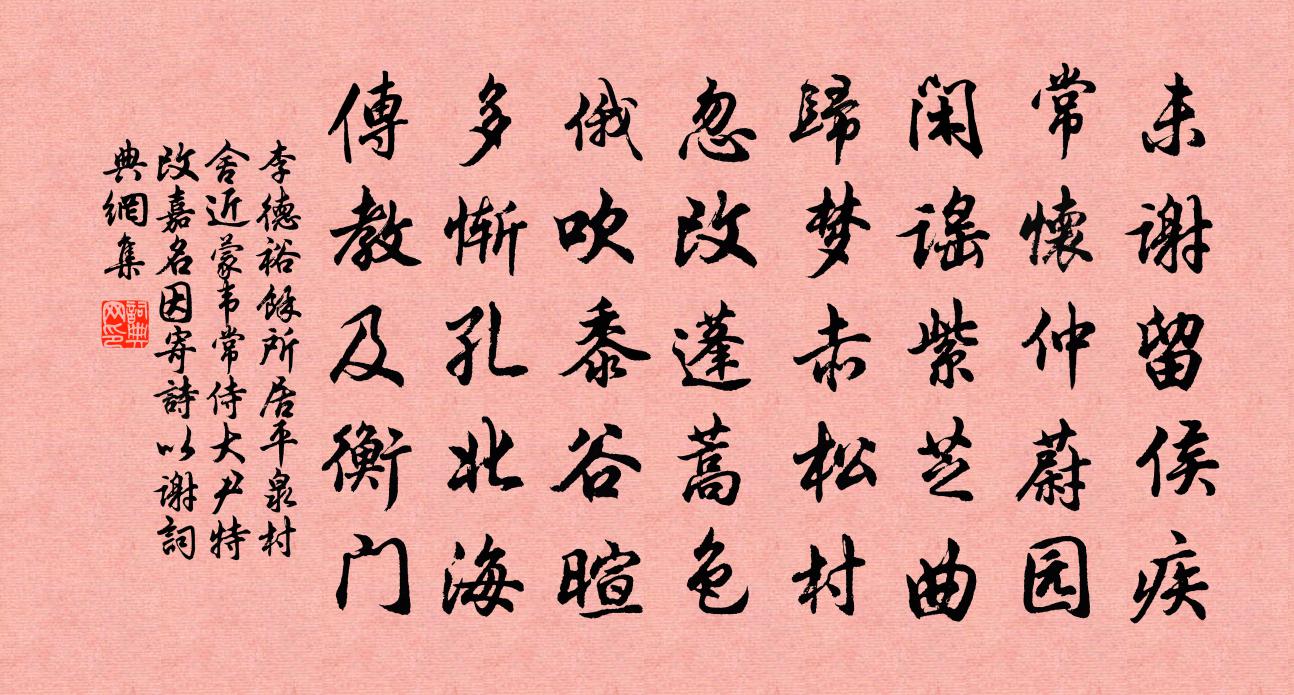 未谢留侯疾
常懷仲蔚园
闲谣紫芝曲
歸梦赤松村
忽改蓬蒿色
俄吹黍谷暄
多惭孔北海
傳教及衡门
李德裕餘所居平泉村
舍近蒙韦常侍大尹特
改嘉名因寄詩以谢詞
典網集
詞典网印